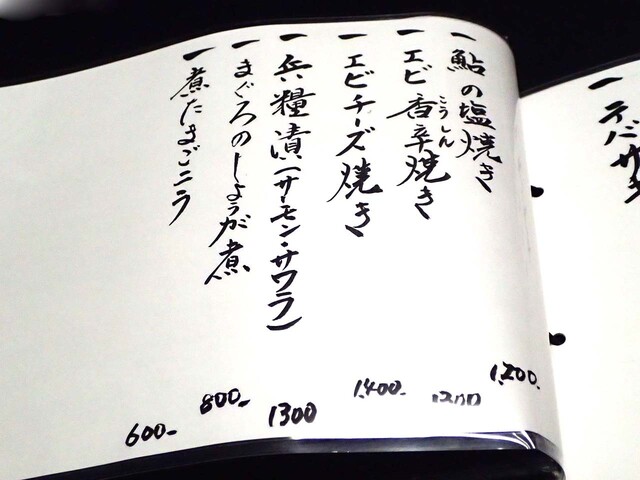 一 テバサキ
一 鮎の塩焼き 1,200-
一 エビ香辛焼き 1200
こうしん
一 エビチーズ焼き 1,400-
一 兵糧漬(サーモン・サワラ) 1300
一 まぐろのしょうが煮 800-
一 煮たまご二ヶ 600-